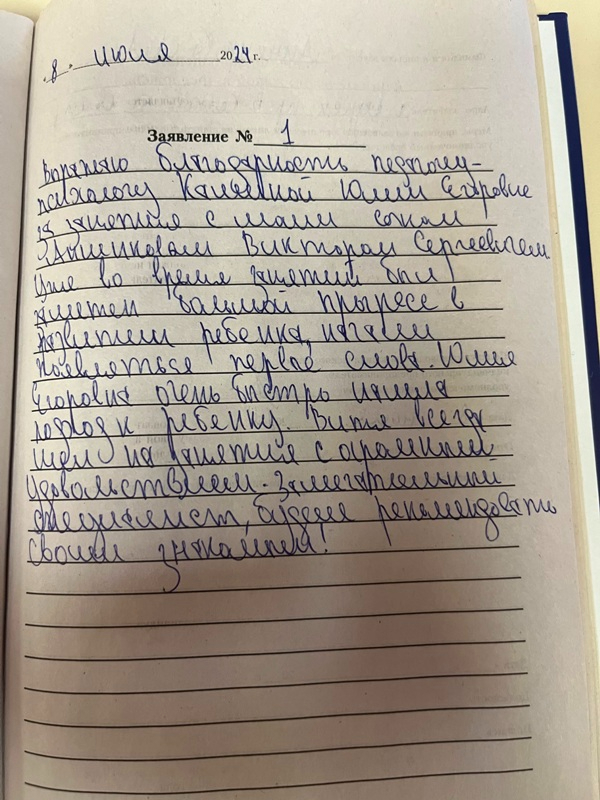 "8" июля 2024 г.
Заявление № 1
Выражаю благодарность педагогу-
психологу Юлии Егоровне
за занятия с моим сыном
Виктором Сергеевичем
Уже во время занятий был
заметен большой прогресс в
развитии ребенка, начали
появляться первые слова. Юлия
Егоровна очень быстро нашла
подход к ребенку. Витя всегда
шел на занятия с огромным
удовольствием. Замечательный
специалист, будем рекомендовать
своим знакомым!